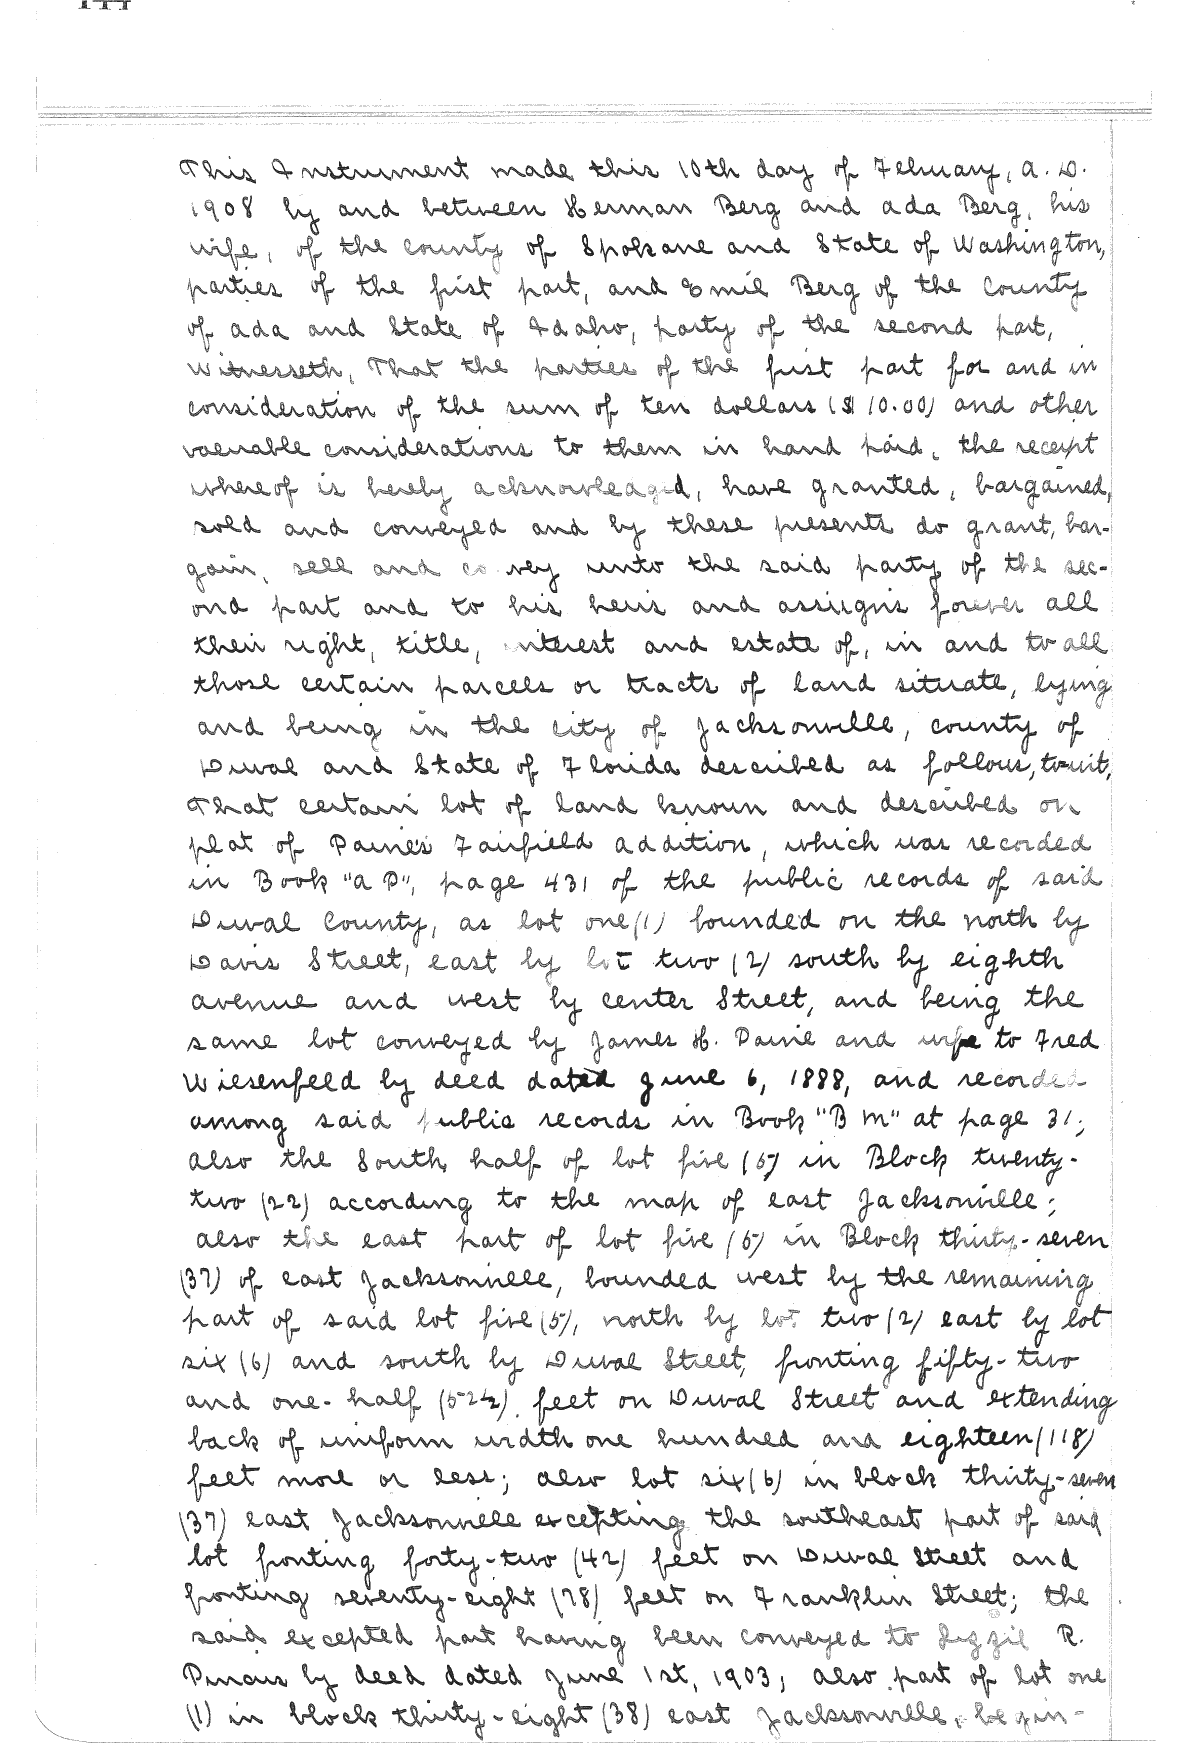 This Instrument made this 10th day of February, A. D.
1908 by and between Herman Berg and Ada Berg, his
wife, of the county of Spokane and State of Washington,
parties of the first part, and Emil Berg of the County
of Ada and State of Idaho, party of the second part,
Witnesseth, That the parties of the first part for and in
consideration of the sum of ten dollars ($10.00) and other
valuable considerations to them in hand paid, the receipt
whereof is hereby acknowledged, have granted, bargained,
sold and conveyed and by these presents do grant, bar-
gain, sell and convey unto the said party of the sec-
ond part and to his heirs and assigns forever all
their right, title, interest and estate of, in and to all
those certain parcels or tracts of land situate, lying
and being in the city of Jacksonville, county of
Duval and State of Florida described as follows, to-wit,
That certain lot of land known and described on
plat of Paine's Fairfield addition, which was recorded
in Book "A P", page 431 of the public records of said
Duval County, as lot one (1) bounded on the north by
Davis Street, east by lot two (2) south by eighth
avenue and west by center Street, and being the
same lot conveyed by James H. Paine and wife to Fred
Wiesenfeld by deed dated June 6, 1888, and recorded
among said public records in Book "B M" at page 31;
also the South half of lot five (5) in Block twenty-
two (22) according to the map of east Jacksonville;
also the east part of lot five (5) in Block thirty-seven
(37) of east Jacksonville, bounded west by the remaining
part of said lot five (5), north by lot two (2) east by lot
six (6) and south by Duval Street, fronting fifty-two
and one-half (52½) feet on Duval Street and extending
back of uniform width one hundred and eighteen (118)
feet more or less; also lot six (6) in block thirty-seven
(37) east Jacksonville excepting the southeast part of said
lot fronting forty-two (42) feet on Duval Street and
fronting seventy-eight (78) feet on Franklin Street; the
said excepted part having been conveyed to Lizzie R.
Pincus by deed dated June 1st, 1903; also part of lot one
(1) in block thirty-eight (38) east Jacksonville, begin-